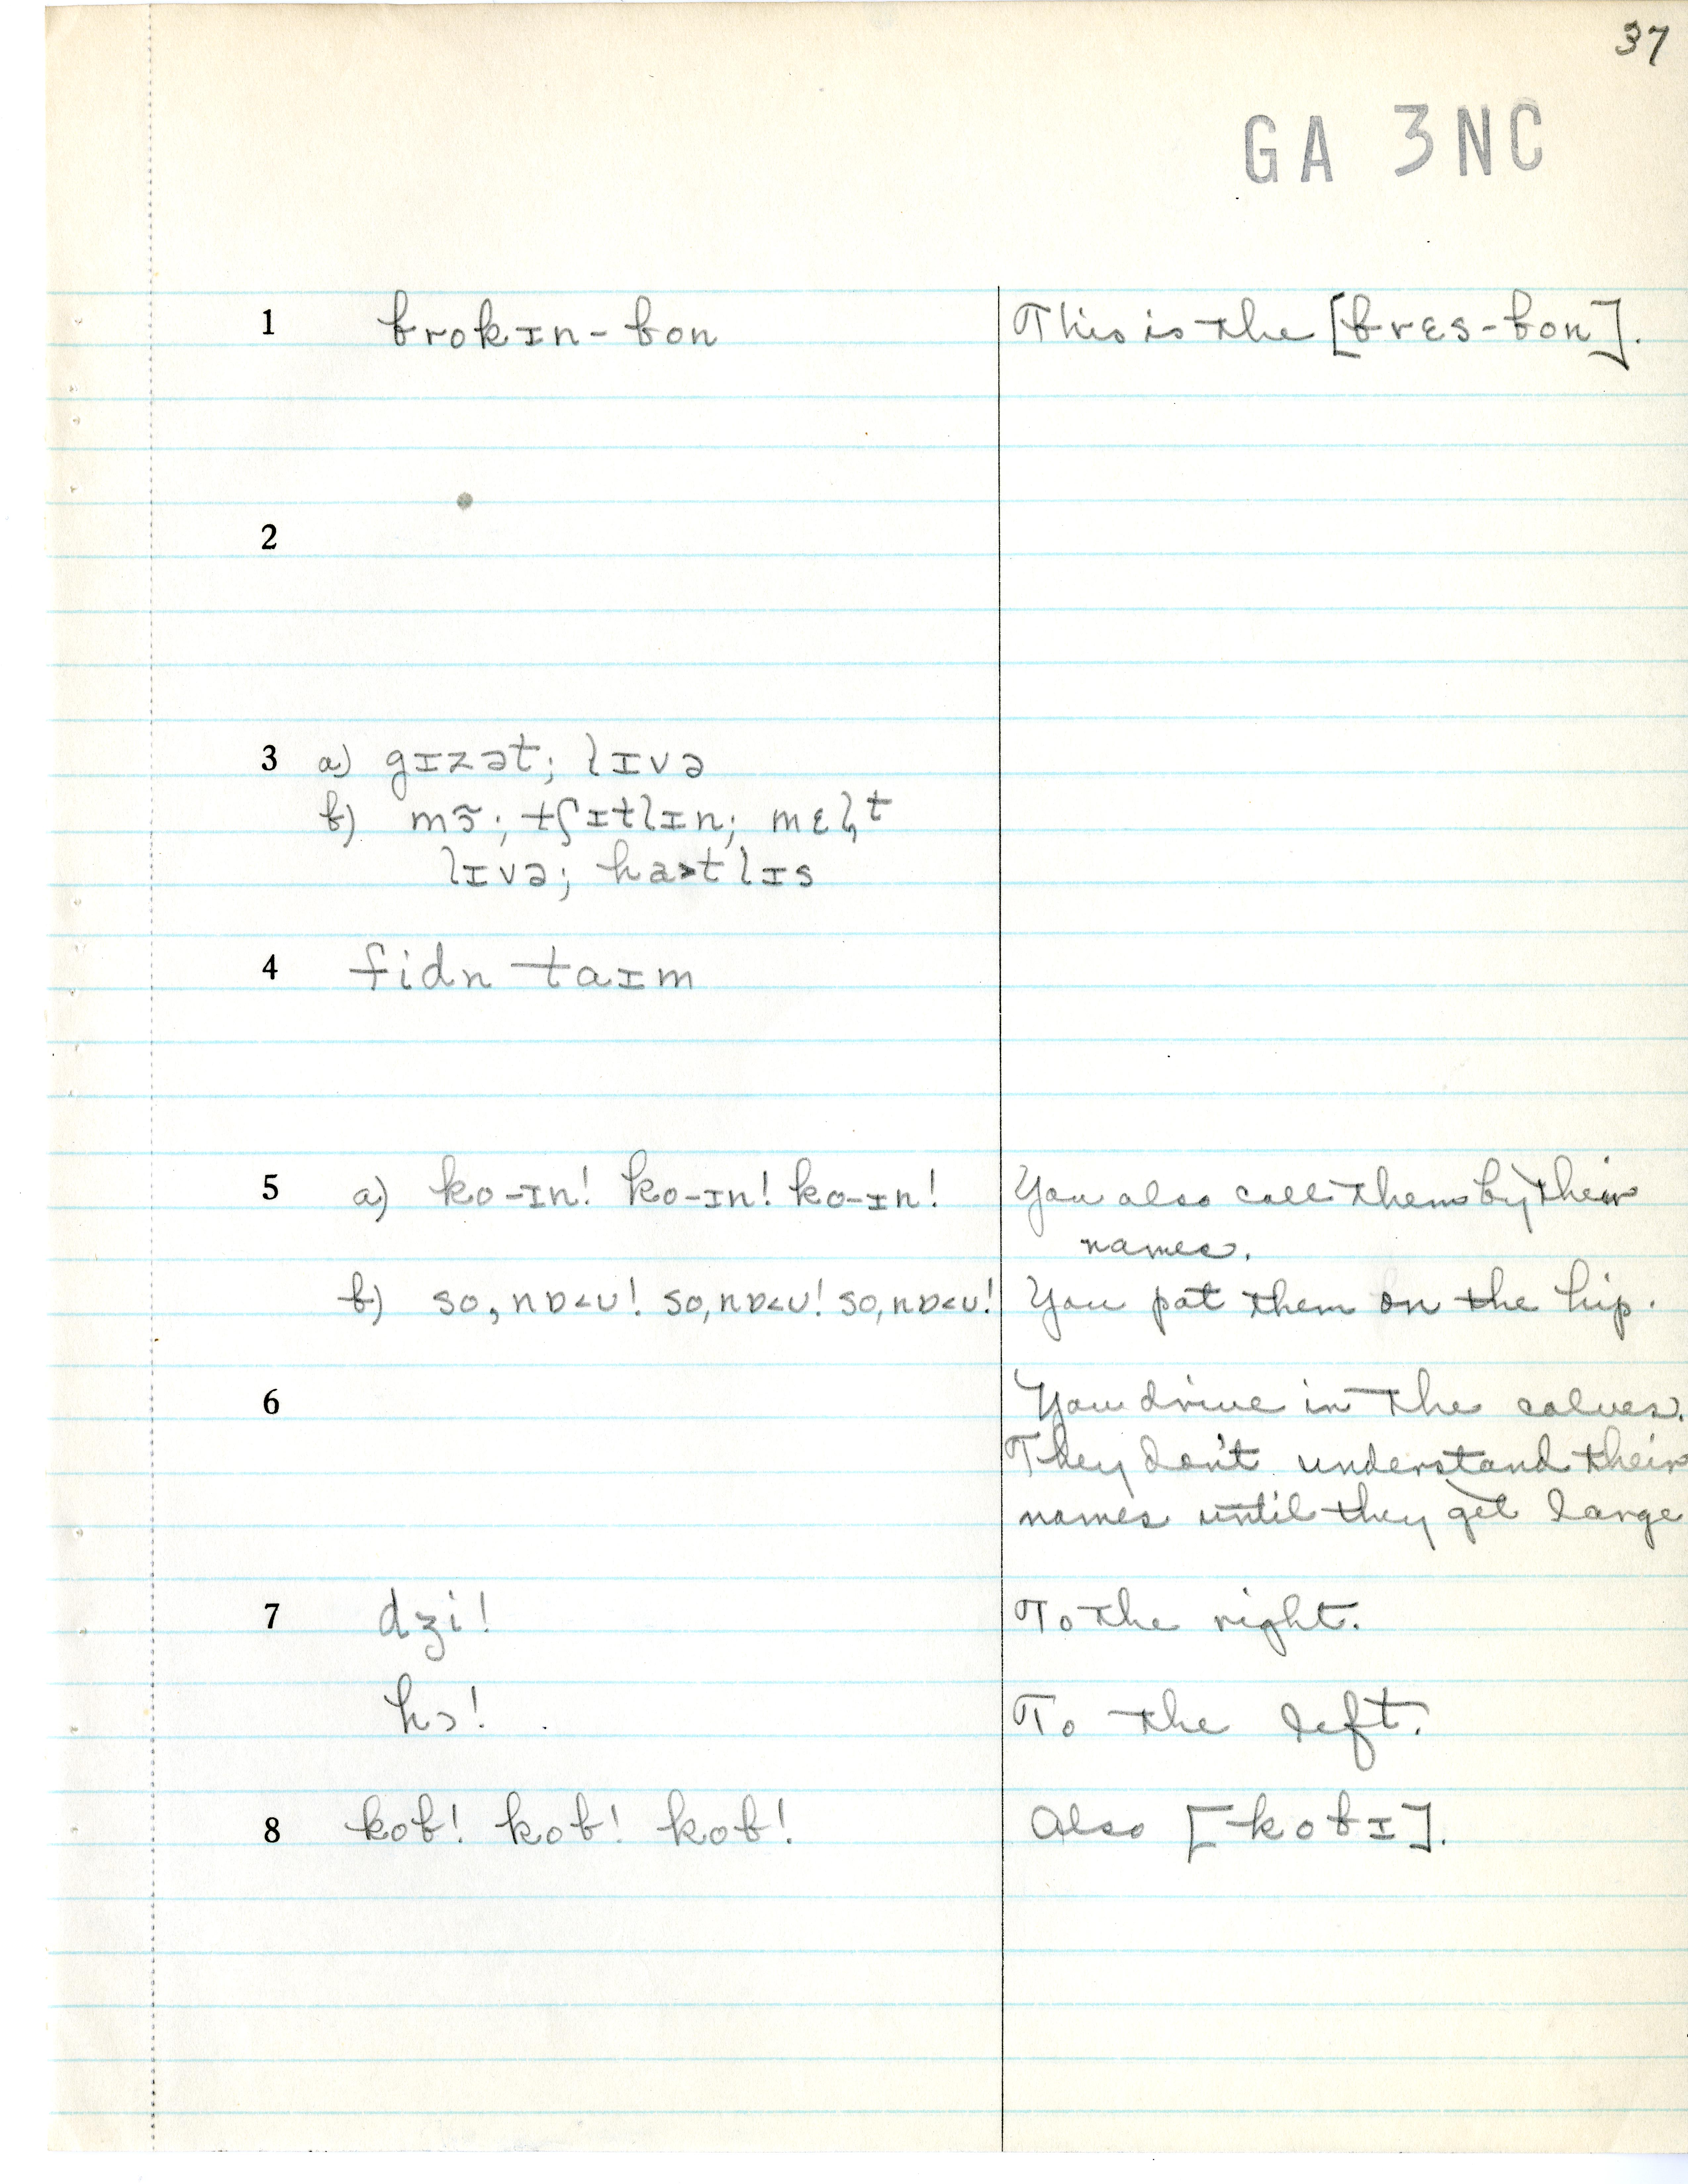 37
GA 3NC
1 brokɪn-bon This is the [brɛs-bon].
2
3 a) gɪzət; lɪvə
b) mɔ̃; tʃɪtlɪn; mɛl̥t
lɪvə; ha>tlɪs
4 fidn taɪm
5 a) ko-ɪn! ko-ɪn! ko-ɪn! You also call them by their
names.
b) so, nɒ<ʊ! so, nɒ<ʊ! so, nɒ<ʊ! You pat them on the hip.
6 You drive in the calves.
They don't understand their
names until they get large
7 dʒi! To the right.
hɔ! To the left.
8 kob! kob! kob! Also [kobɪ].